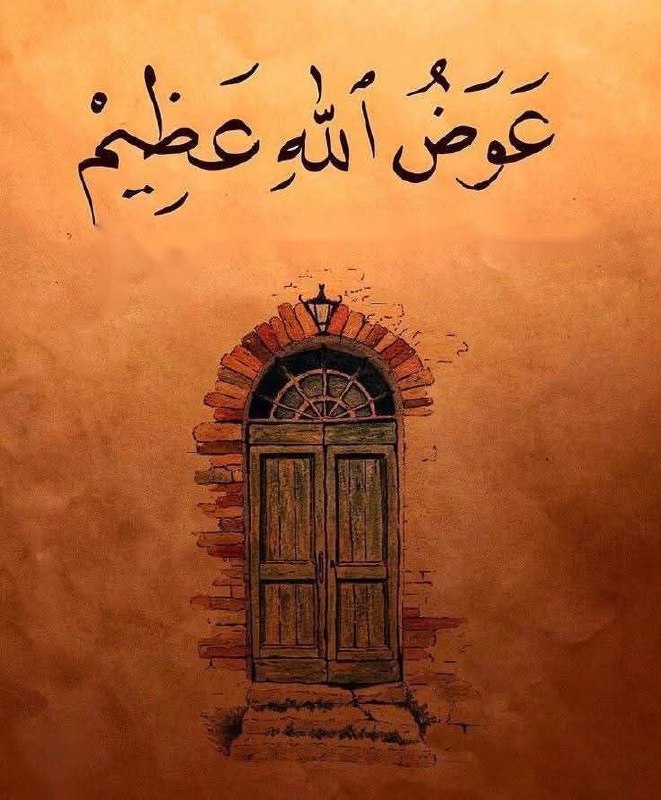 عَوَضُ ٱللّٰهِ عَظِيمْ